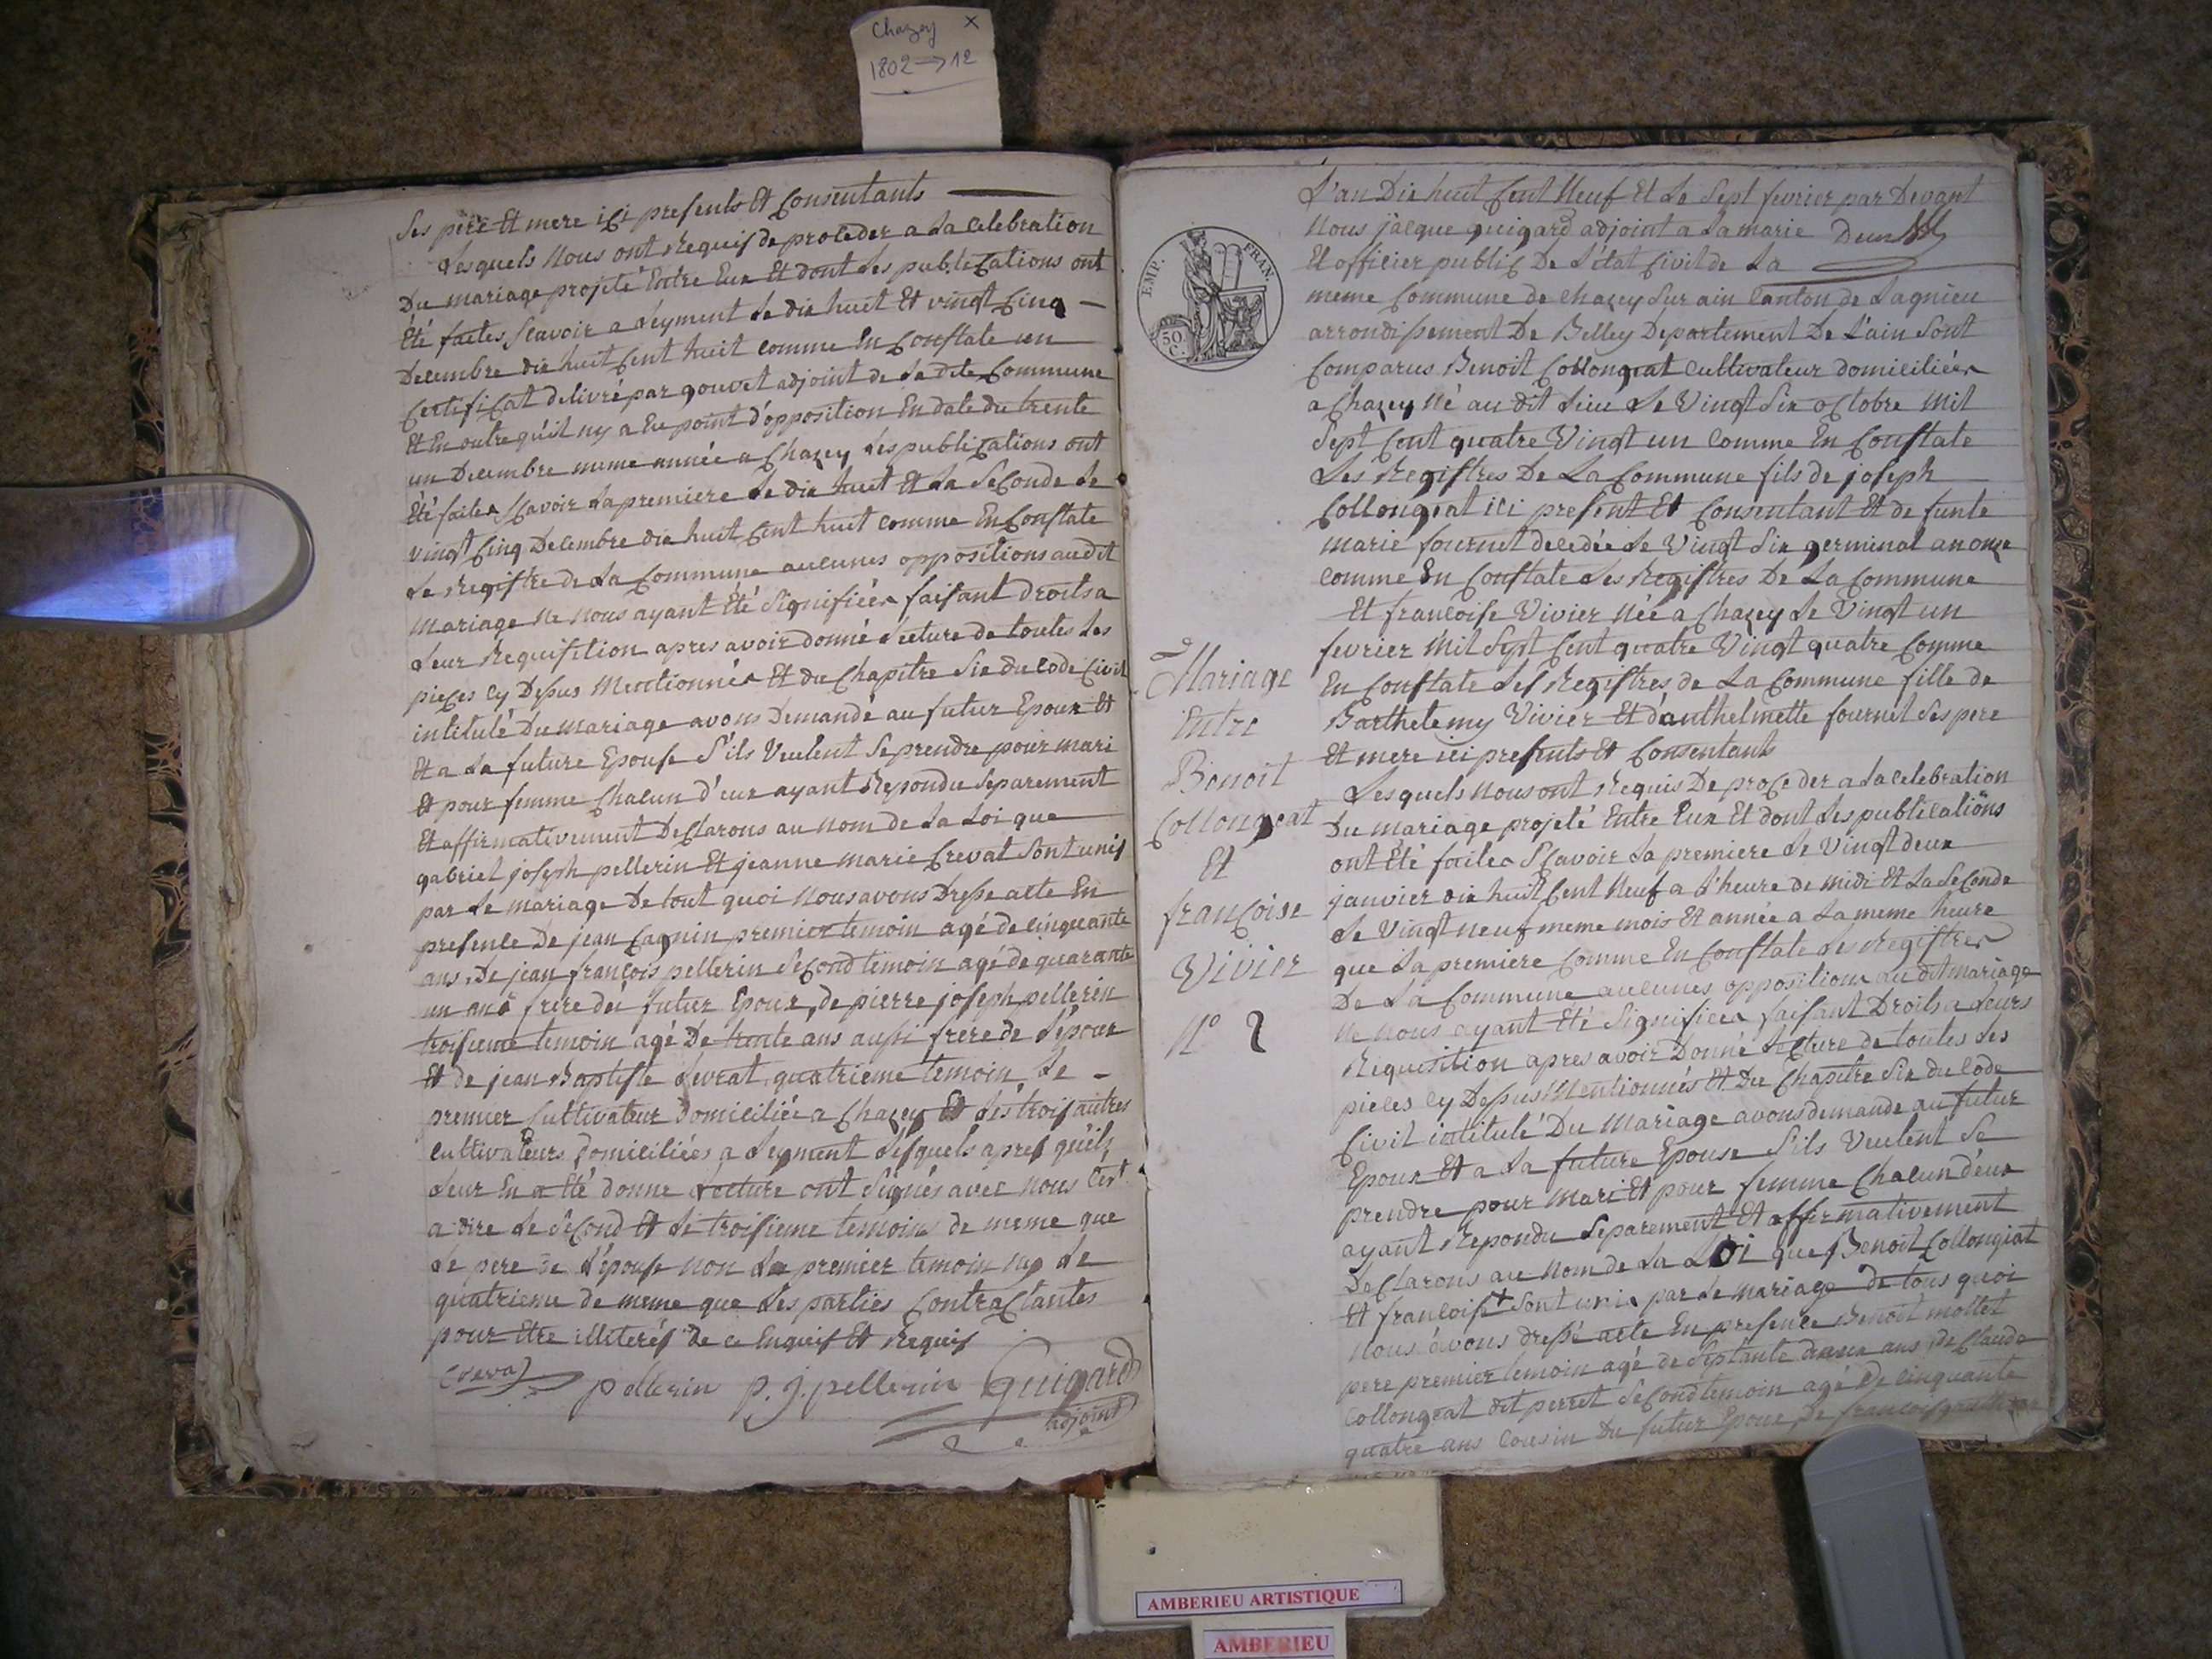 Chazey X
1802 → 12
Ses pere Et mere ici presents Et Consentants
Lesquels Nous ont Requis de proceder a La Celebration
Du mariage projeté Entre Eux Et dont Les publications ont
Eté faites Scavoir a Leyment Le dix huit Et vingt Cinq
Decembre dix huit Cent huit comme En Constate un
Certificat delivré par gouvet adjoint de La dite Commune
Et En outre qu'il ny a Eu point d'opposition En date du trente
un Decembre meme année a Chazey Les publications ont
Eté faites Scavoir La premiere Le dix huit Et La Seconde Le
vingt Cinq Decembre dix huit Cent huit comme En Constate
Le Registre de La Commune aucunes oppositions au dit
mariage Ne nous ayant Eté Signifiées faisant droits a
Leur Requisition apres avoir donné Lecture de toutes Les
pieces cy Dessus Mentionnés Et du Chapitre Six du Code Civil
intitulé Du mariage avons Demandé au futur Epoux Et
Et a La future Epouse S'ils Veulent Se prendre pour mari
Et pour femme Chacun d'eux ayant Repondu Separement
Et affirmativement Declarons au Nom de La Loi que
gabriel joseph pellerin Et jeanne marie Crevat Sont unis
par Le mariage De tout quoi Nous avons Dressé acte En
presence De jean Cagnin premier temoin agé de cinquante
ans, De jean françois pellerin Second temoin agé de quarante
un ans frere du futur Epoux, de pierre joseph pellerin
troisieme temoin agé De trente ans aussi frere de L'époux
Et de jean Baptiste Levrat quatrieme temoin Le
premier Cultivateur Domicilié a Chazey Et Les trois autres
Cultivateurs Domiciliés a Leyment Lesquels apres qu'ils
Leur En a Eté donne Lecture ont Signés avec Nous C'est
a dire Le Second Et Le troisieme temoins de meme que
Le pere de L'épouse non Le premier temoin Ny Le
quatrieme de meme que Les parties Contractantes
pour Etre illiterés de ce Enquis Et Requis
Creva pellerin p. j. pellerin Guigard
adjoint
L'an Dix huit Cent Neuf Et Le Sept fevrier par Devant
Nous jacque guigard adjoint a La marie
Et officier public De L'état Civil de La
EMP. FRAN.
50 C.
meme Commune de Chazey Sur ain Canton de Lagnieu
arrondissement De Belley Departement De L'ain Sont
Comparus Benoit Collongeat Cultivateur domiciliée
a Chazey Né au dit Lieu Le Vingt Six octobre Mil
Sept Cent quatre Vingt un Comme En Constate
Les Registres De La Commune fils de joseph
Collongeat ici present Et Consentant Et de funte
marie fournet decedée Le Vingt Six germinal an onze
comme En Constate Les Registres De La Commune
Et françoise Vivier Née a Chazey Le Vingt un
fevrier Mil Sept Cent quatre Vingt quatre Comme
En Constate Les Registres de La Commune fille de
Barthelemy Vivier Et d'anthelmette fournet Ses pere
Et mere ici presents Et Consentants
Mariage
Entre
Benoit
Collongeat
Et
françoise
Vivier
N° 2
Lesquels Nous ont Requis De proceder a La Celebration
Du mariage projeté Entre Eux Et dont Les publications
ont Eté faites Scavoir La premiere Le Vingt deux
janvier dix huit Cent Neuf a L'heure de midi Et La Seconde
Le Vingt neuf meme mois Et année a La meme heure
que La premiere Comme En Constate Les Registres
De La Commune aucunes oppositions au dit mariage
Ne Nous ayant Eté Signifiées faisant Droits a Leurs
Requisition apres avoir Donné Lecture de toutes Les
pieces cy Dessus Mentionnés Et Du Chapitre Six du Code
Civil intitulé Du Mariage avons demande au futur
Epoux Et a La future Epouse S'ils Veulent Se
prendre pour Mari Et pour femme Chacun d'eux
ayant Repondu Separement Et affirmativement
Declarons au Nom de La Loi que Benoit Collongeat
Et françoise + Sont unis par Le mariage de tous quoi
Nous avons dressé acte En presence Benoit mollet
pere premier temoin agé de Septante deux ans, De Claude
Collongeat dit perret Second temoin agé De cinquante
quatre ans Cousin Du futur Epoux De françois
AMBERIEU ARTISTIQUE
AMBERIEU